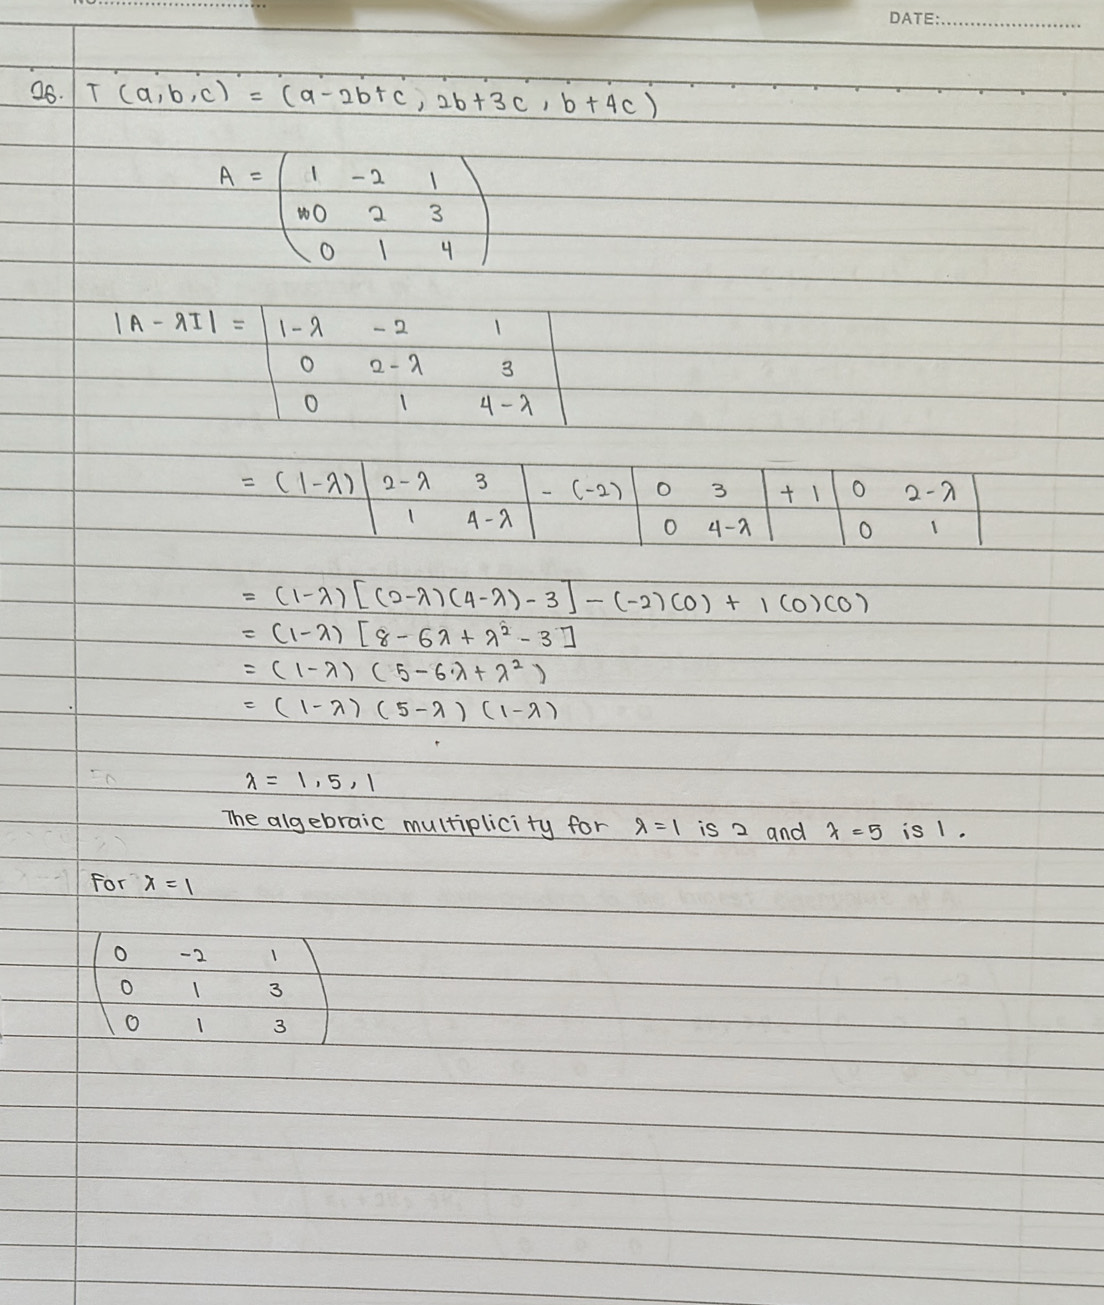 DATE:
Q6. T (a,b,c) = (a-2b+c, 2b+3c, b+4c)
A = ( 1 -2 1
0 2 3
0 1 4 )
|A - λI| = | 1-λ -2 1 |
| 0 2-λ 3 |
| 0 1 4-λ |
= (1-λ) | 2-λ 3 | - (-2) | 0 3 | + 1 | 0 2-λ |
| 1 4-λ | | 0 4-λ | | 0 1 |
= (1-λ) [(2-λ)(4-λ)-3] - (-2)(0) + 1(0)(0)
= (1-λ) [8 - 6λ + λ² - 3]
= (1-λ) (5-6λ+λ²)
= (1-λ) (5-λ) (1-λ)
λ = 1, 5, 1
The algebraic multiplicity for λ=1 is 2 and λ=5 is 1.
For λ=1
( 0 -2 1
0 1 3
0 1 3 )